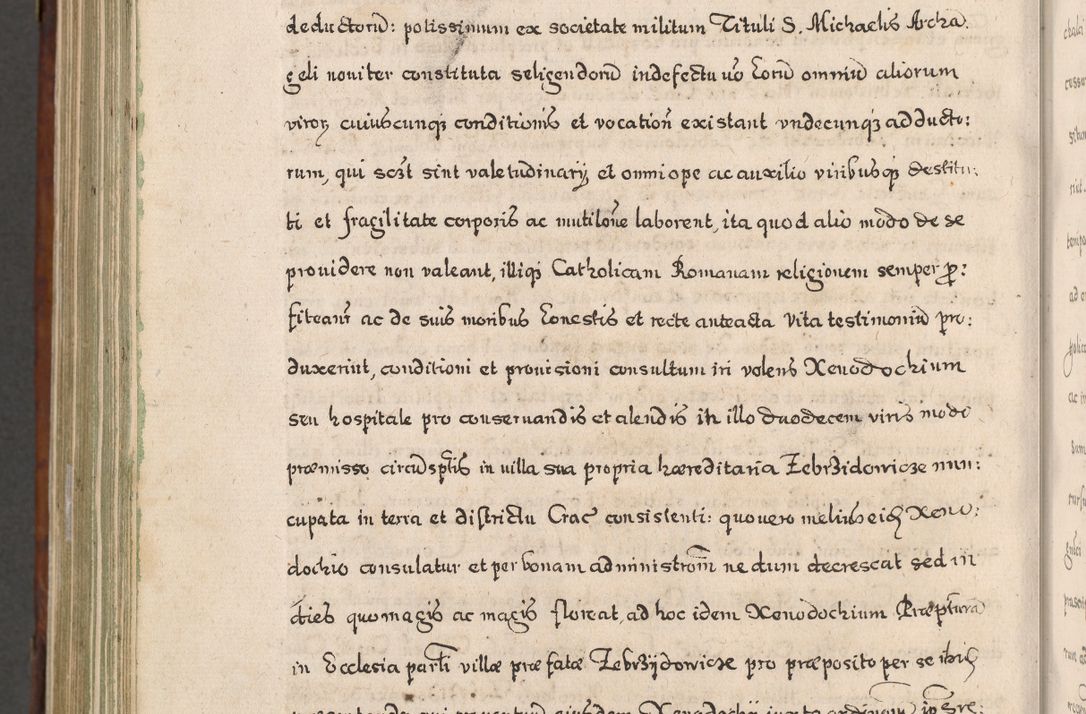 deductorū: potissimum ex societate militum Tituli S. Michaelis Archa
geli noviter constituta seligendorū in defectu vo horū omniū aliorum
viroꝝ cuiuscunqꝫ conditionis et vocation̄ existant undecunqꝫ adducto:
rum, qui sc̄t sint valetudinarÿ et omni ope ac auxilio viribusqꝫ destitu:
ti et fragilitate corporis ac mutilōne laborent, ita quod alio modo de se
providere non valeant, illiqꝫ Catholicam Romanam religionem semper ꝓ:
fiteant̄ ac de suis moribus honestis et recte anteacta vita testimoniū pro:
duxerint, conditioni et provisioni consultum iri volens Xenodochium
seu hospitale pro conservandis et alendis in illo duodecem viris modo
præmisso circūsp̄tis in villa sua propria hæreditaria Zebrzidowicze nun:
cupata in terra et districtu Crac̄ consistenti: quo vero melius eidꝫ Xeno:
dochio consulatur et per bonam administrōm̄ ne dum decrescat sed in
dies quo magis ac magis floreat, ad hoc idem Xenodochium Præp̄turā
in Ecclesia parti villæ præfatæ Zebrzÿdowicze pro præposito per se ibidꝫ